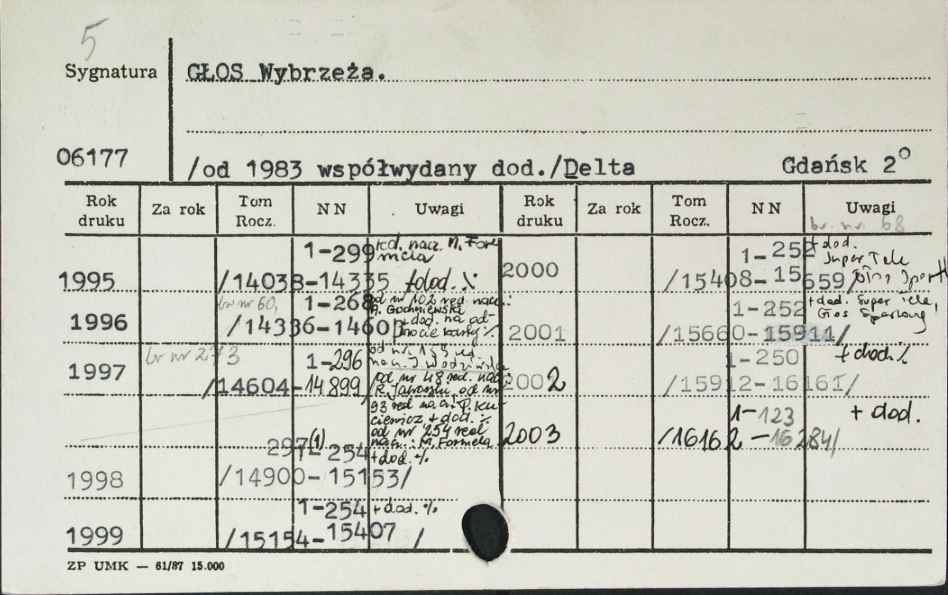 5
Sygnatura
GŁOS Wybrzeża.
06177
/od 1983 współwydany dod./Delta Gdańsk 2°
Rok druku Za rok Tom Rocz. NN Uwagi Rok druku Za rok Tom Rocz. NN Uwagi
br. nr. 68
1-299 red. nacz. M. Formela
1995 /14038-14335 +dod. %
br nr 60, 1-268 od nr 102 red. nacz.
1996 /14336-1460 +dod. na odwrocie karty %
br nr 2-73 1-296 od nr 155 red nacz. J. Wodziński
1997 /14604-14899/ od nr 48 red. nacz.
93 red nacz. P. Kuciewicz + dod. %
od nr 254 red nacz.: M. Formela
297(1)-254 + dod. %
1998 /14900-15153/
1-254 + dod. %
1999 /15154-15407 /
1-252 + dod. Super Tele
2000 /15408-15659/ Głos Sport
1-252 + dod. Super Tele, Głos Sportowy
2001 /15660-15911/
1-250 + dod. %
2002 /15912-16161/
1-123 + dod.
2003 /16162-16284/
ZP UMK — 61/87 15.000